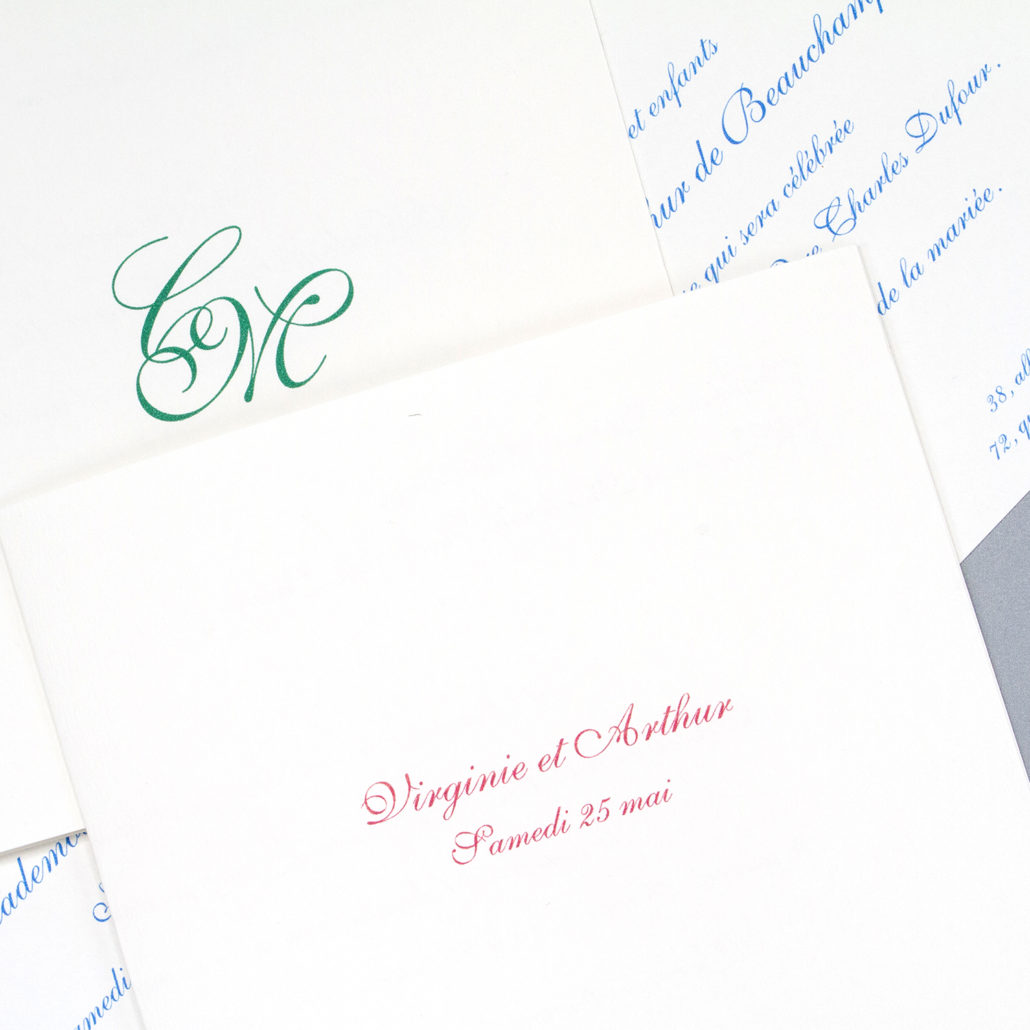 et enfants
de Beauchamp
qui sera célébrée
Charles Dufour.
de la mariée.
38,
72,
CM
Virginie et Arthur
Samedi 25 mai